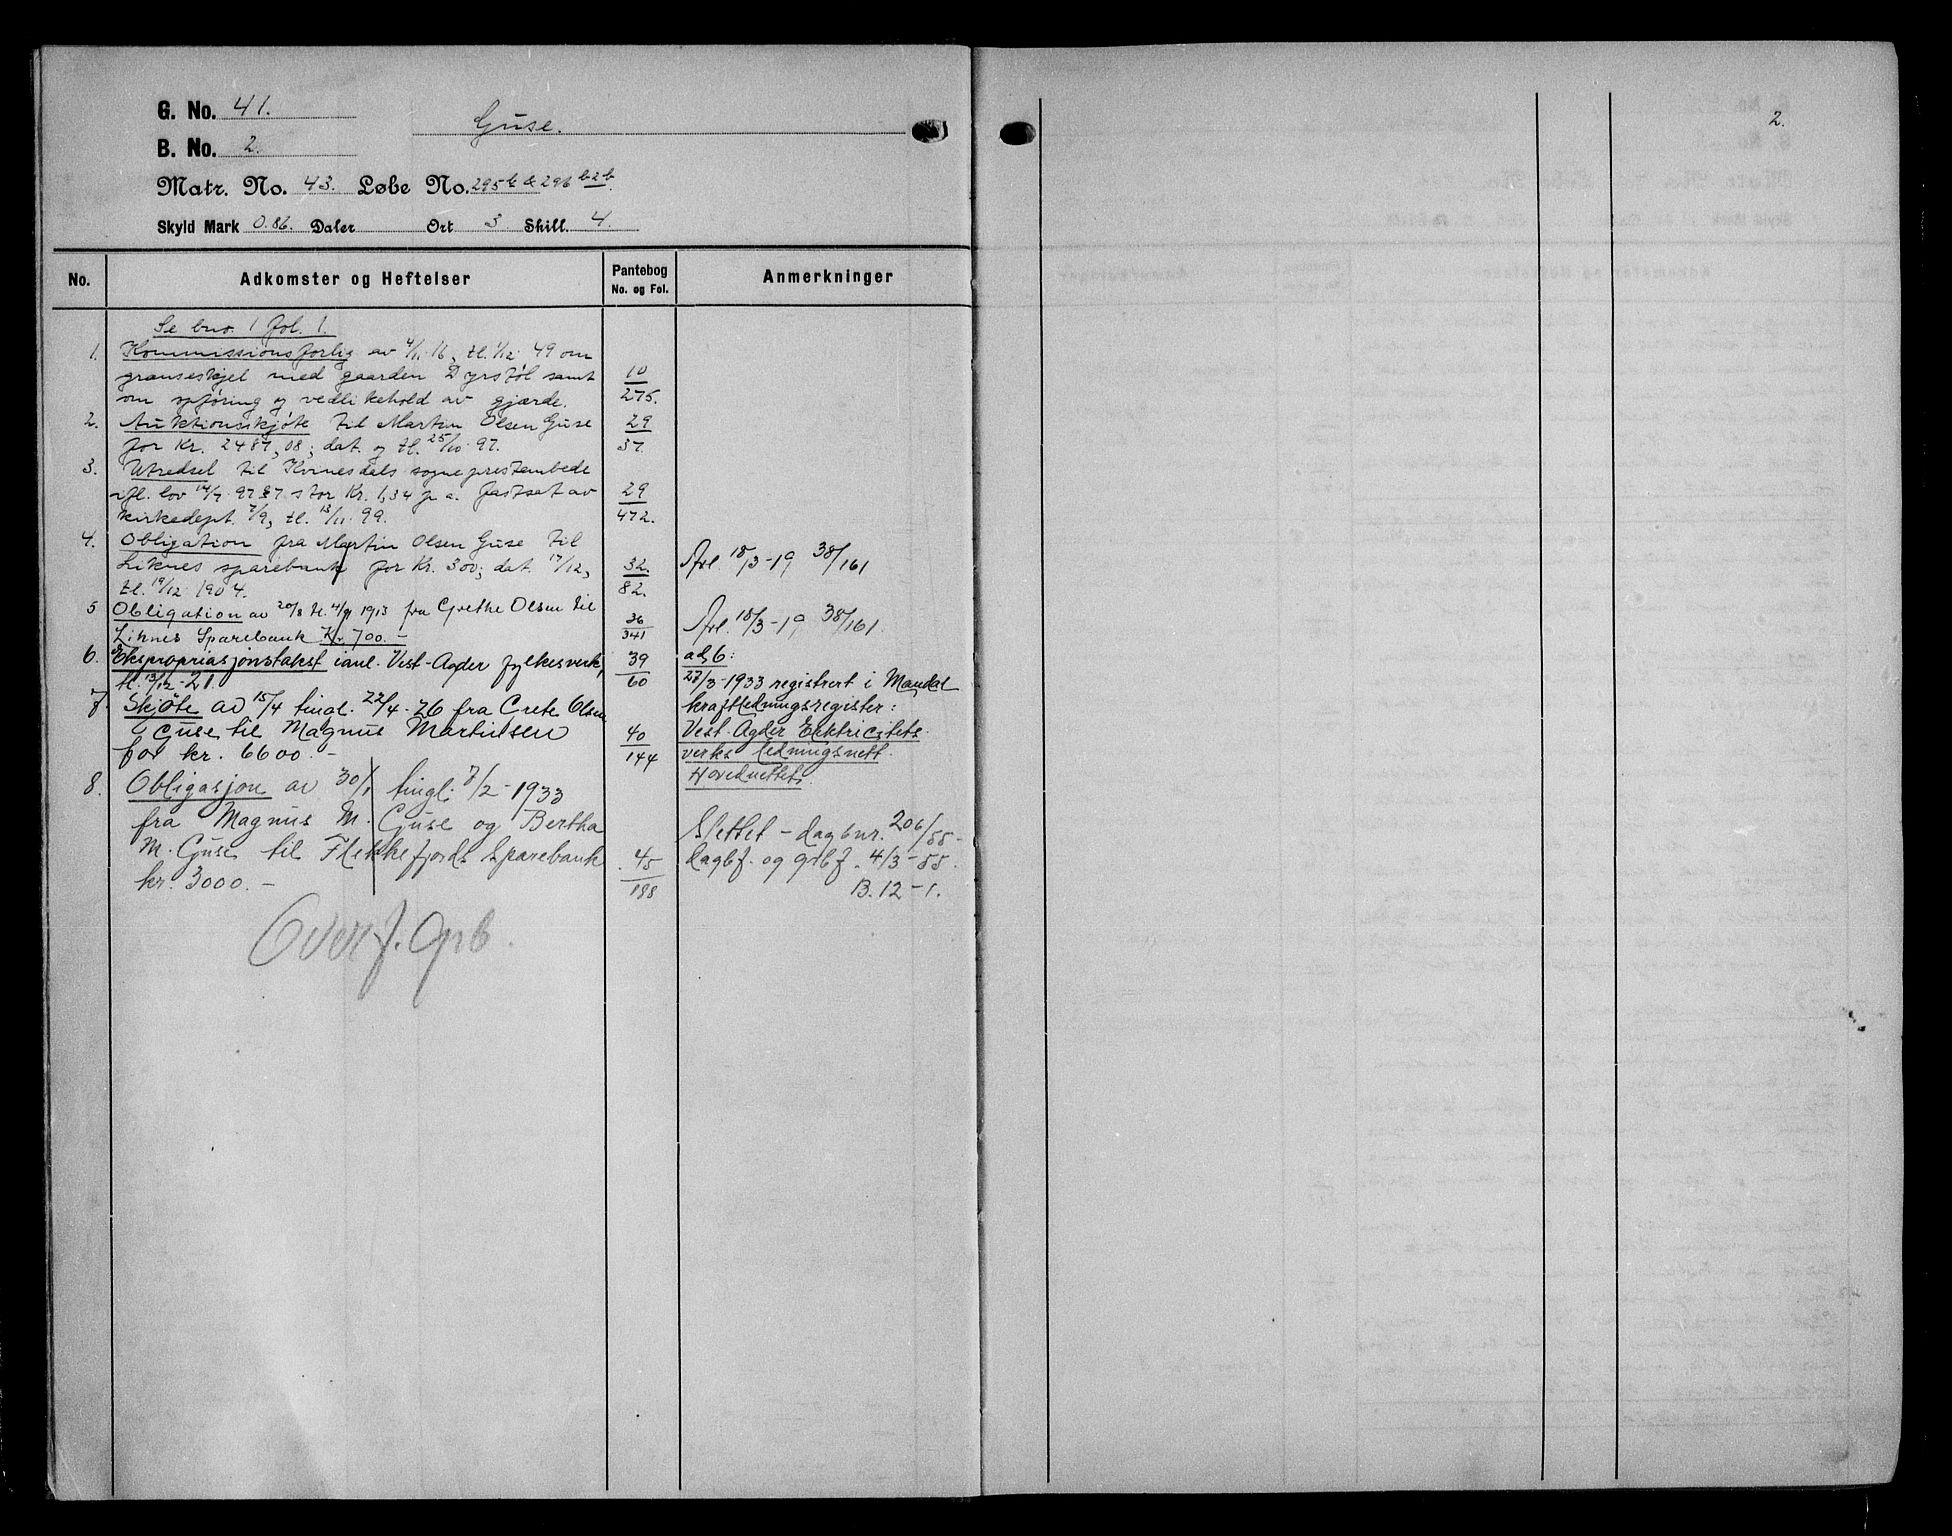 G. No. 41.
Guse.
2.
B. No. 2.
Matr. No. 43. Løbe No. 295 b & 296 b2b.
Skyld Mark 0.86. Daler Ort 3 Skill. 4.
No. Adkomster og Heftelser Pantebog No. og Fol. Anmerkninger
Se bno. 1 fol. 1.
1. Kommissionsforlig av 4/11 16, tl. 1/12 49 om
grænseskjel med gaarden Dyrstøl samt 10
om opføring og vedlikehold av gjærde. 275.
2. Auktionsskjøte til Martin Olsen Guse 29
for Kr. 2487,08; dat. og tl. 25/10 97. 37.
3. Utredsel til Kvinesdals sogneprestembede
ifl. lov 14/7 97 §7 stor Kr. 1,34 p a. fastsat av 29
kirkedept. 7/9, tl. 13/11 99. 472.
4. Obligation fra Martin Olsen Guse til
Liknes sparebank for Kr. 300; dat. 17/12, 32. Avl. 18/3-19 38/161
tl. 19/12 1904. 82.
5 Obligation av 20/8 tl. 4/9 1913 fra Grethe Olsen til 36
Liknes Sparebank Kr. 700.- 341 Avl. 18/3-19 38/161.
6. Ekspropriasjonstakst i anl. Vest-Agder fylkesverk, 39 ad 6:
tl. 13/12-21. 60 27/3-1933 registrert i Mandal
7. Skjøte av 15/4 tingl. 22/4-26 fra Grete Olsen kraftledningsregister:
Guse til Magnus Martinsen 40 Vest-Agder Elektricitets-
for kr. 6600.- 144 verks ledningsnett.
Hovednettet.
8. Obligasjon av 30/1 tingl. 7/2-1933
fra Magnus M. Guse og Bertha Slettet - dagbnr. 206/55-
M. Guse til Flekkefjords Sparebank 45 dagbf. og grbf. 4/3-55.
kr. 3000.- 188 B. 12-1.
Overf. Grb.